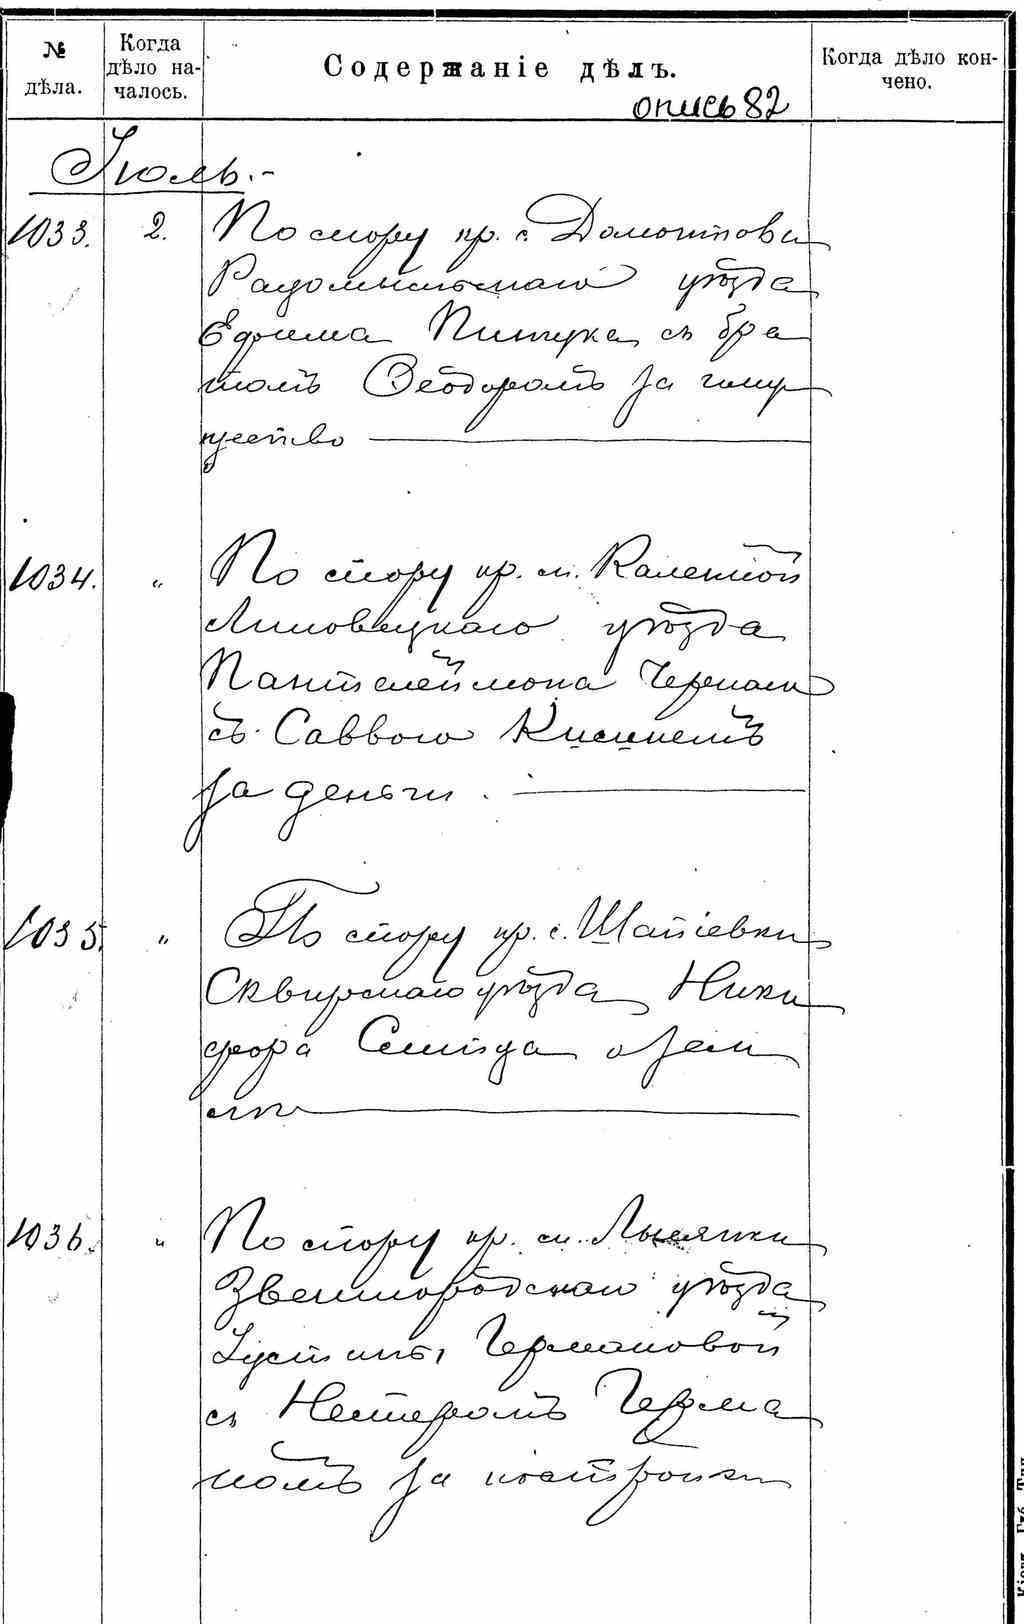 № дѣла.
Когда дѣло на-
чалось.
Содержаніе дѣлъ.
Когда дѣло кон-
чено.
опись 82
Іюль.-
1033. 2. По спору кр. с. Домонтова
Радомысльскаго уѣзда
Ефима Пинчука съ бра
томъ Ѳеодоромъ за иму
щество
1034. " По спору кр. м. Каленной
Липовецкаго уѣзда
Пантелеймона Чермака
съ Саввою Кисилемъ
за деньги.
1035. " По спору кр. с. Шапіевки
Сквирскаго уѣзда Ники
фора о зем
лѣ
1036. " По спору кр. м. Лысянки
Звенигородскаго уѣзда
Іустины Чермановой
съ Нестеромъ Черма
номъ за постройки
Кіевъ. Губ. Тип.